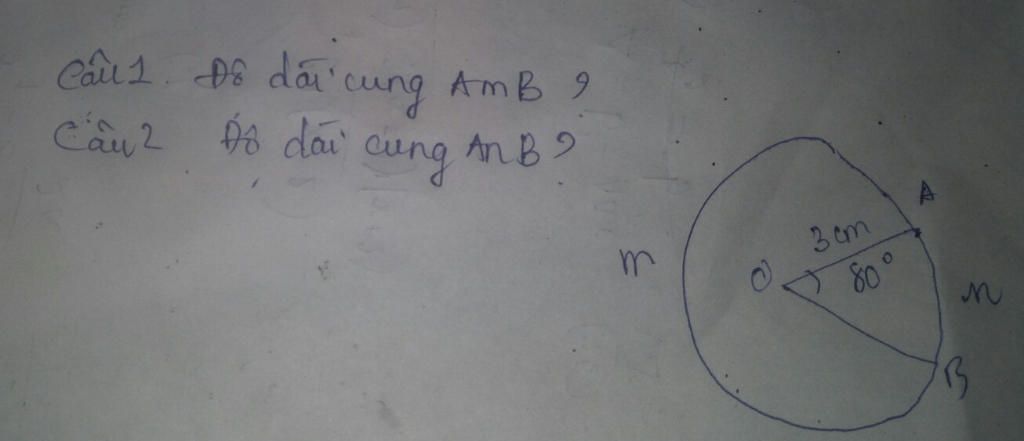 Câu 1. Độ dài cung AmB ?
Câu 2 Độ dài cung AnB ?
A
3 cm
m
O
80°
n
B